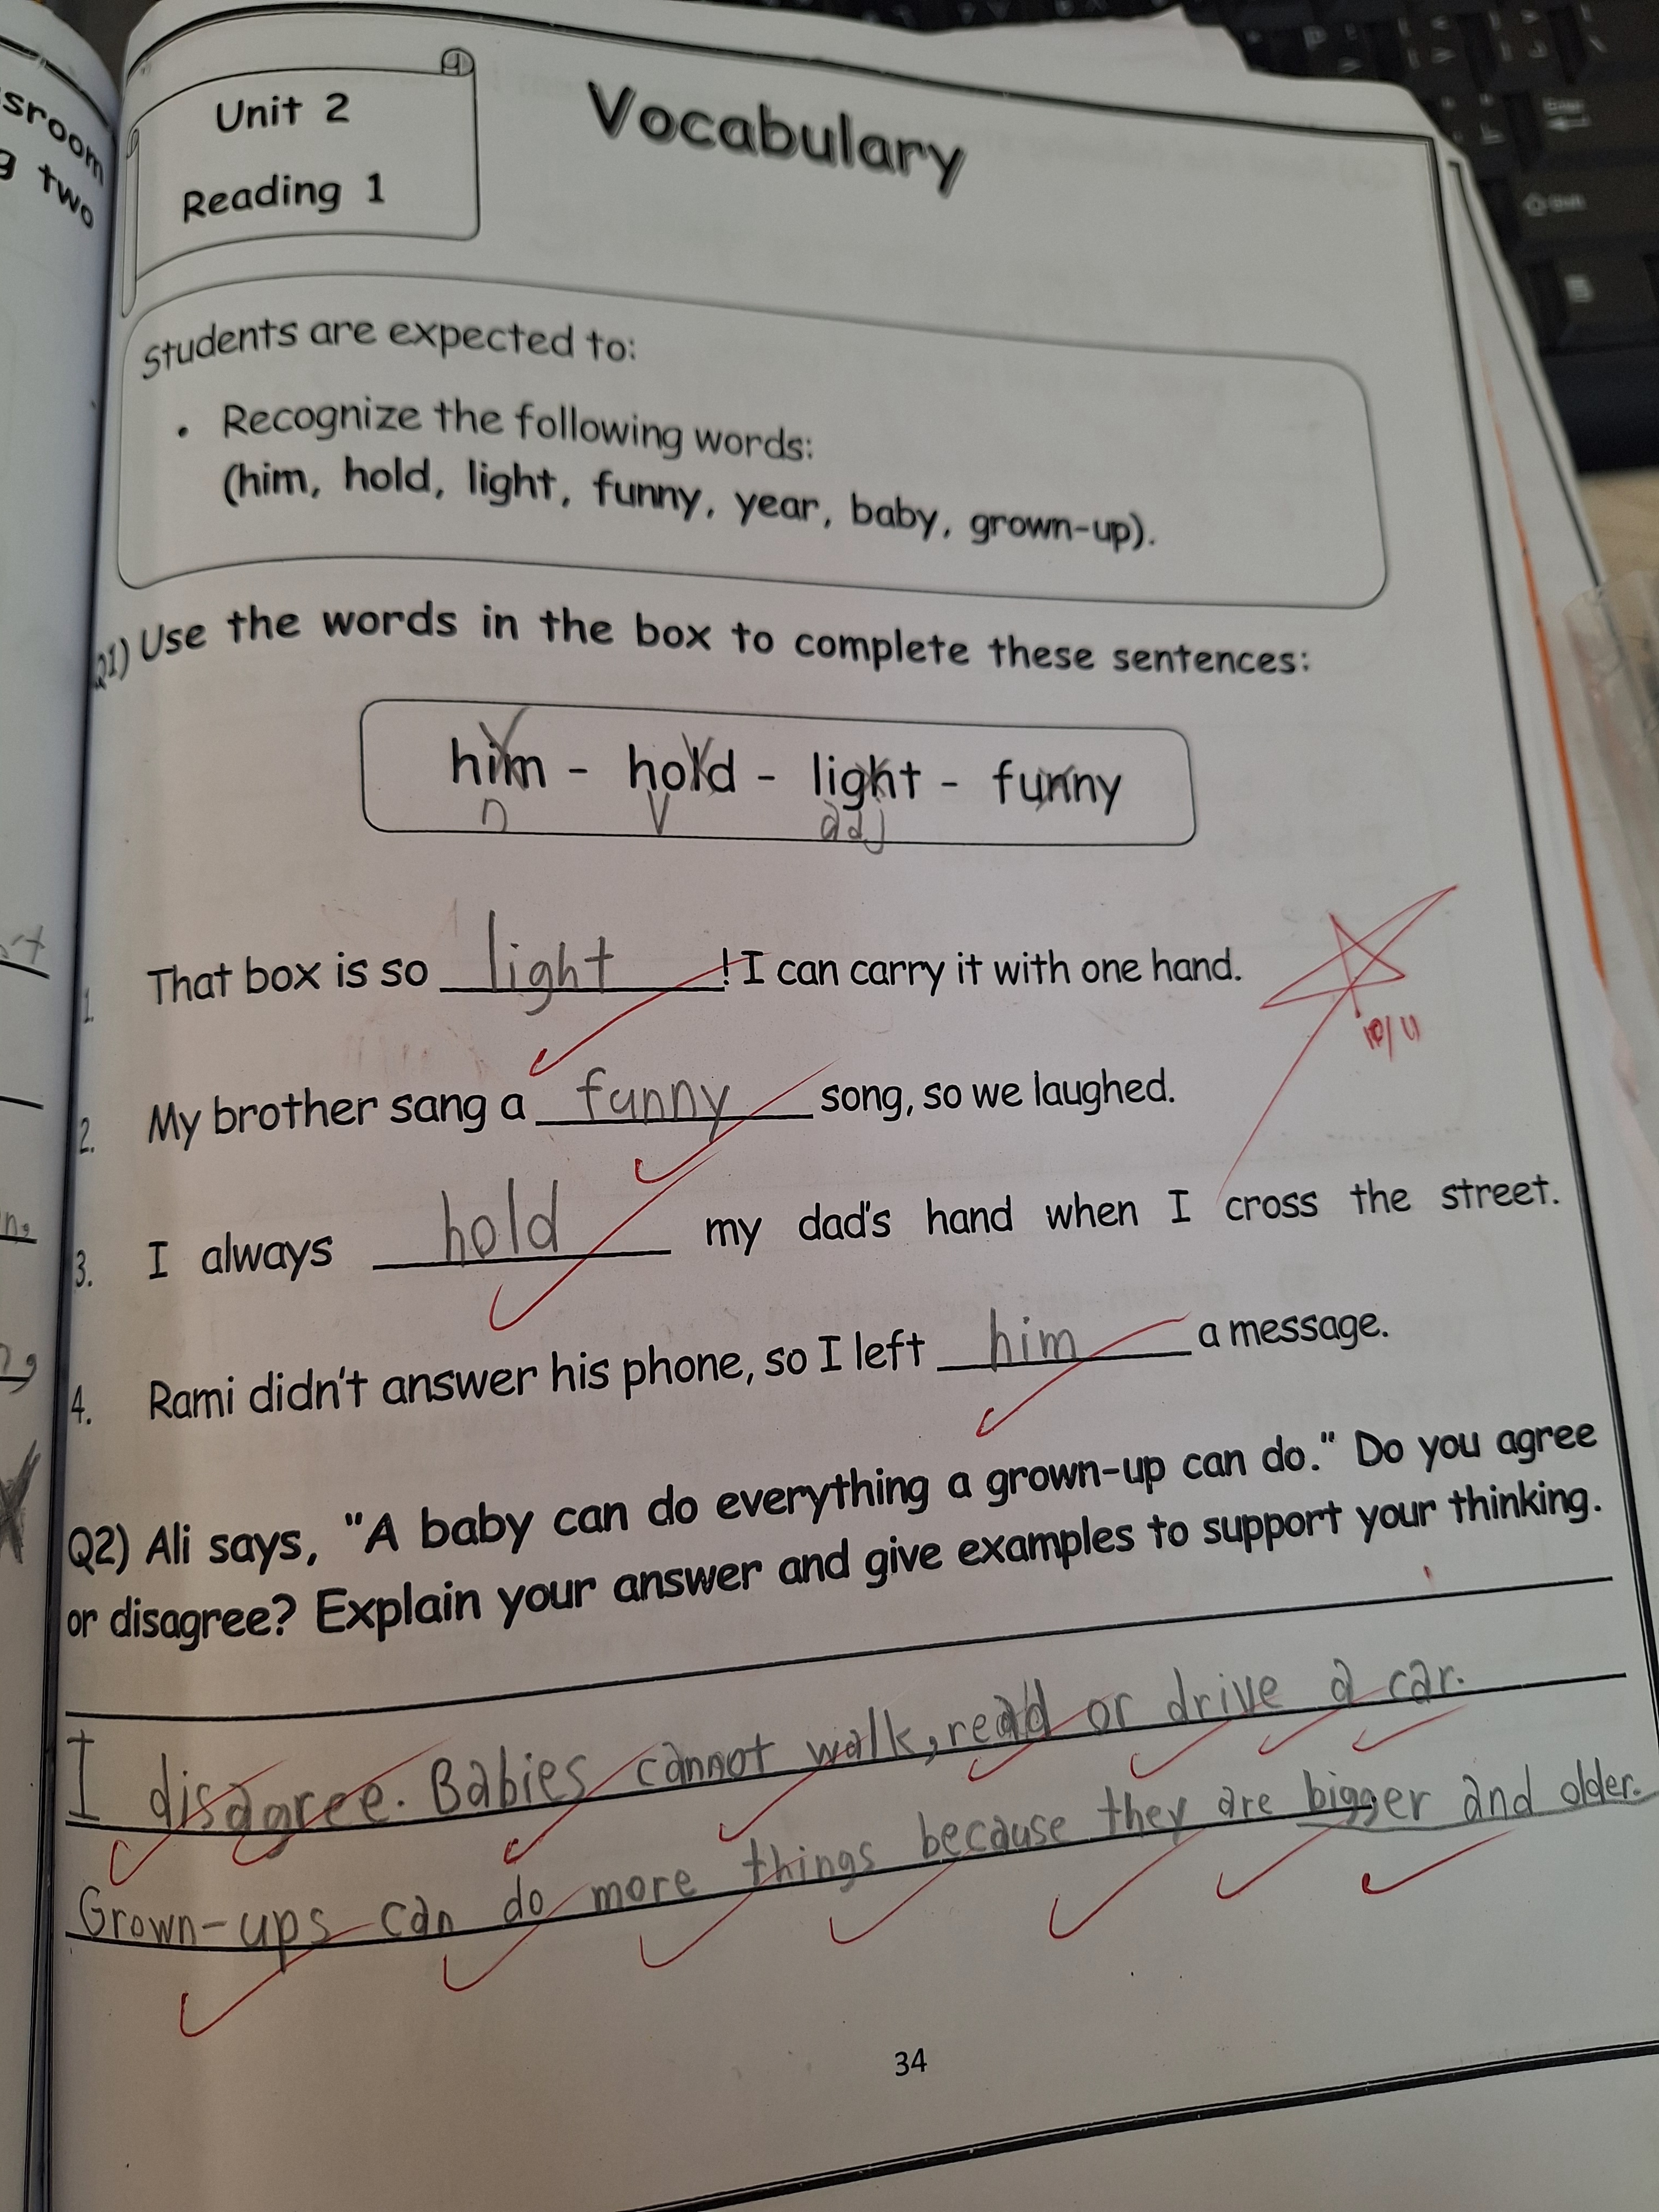 sroom
g two
Unit 2
Reading 1
Vocabulary
Students are expected to:
• Recognize the following words:
(him, hold, light, funny, year, baby, grown-up).
Q1) Use the words in the box to complete these sentences:
him - hold - light - funny
n v adj
1. That box is so light ! I can carry it with one hand.
2. My brother sang a funny song, so we laughed.
3. I always hold my dad's hand when I cross the street.
4. Rami didn't answer his phone, so I left him a message.
Q2) Ali says, "A baby can do everything a grown-up can do." Do you agree
or disagree? Explain your answer and give examples to support your thinking.
I disagree. Babies cannot walk, read or drive a car.
Grown-ups can do more things because they are bigger and older.
34